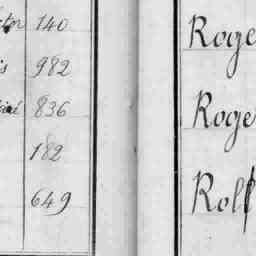 140
982
836
182
649
Roge
Roge
Rol